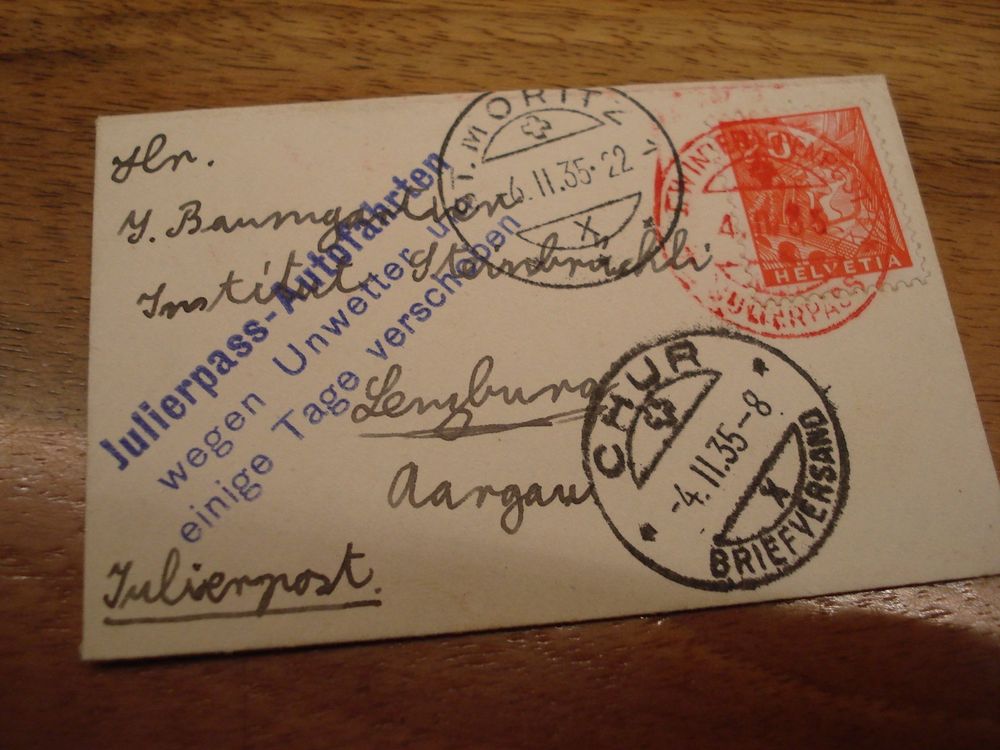 Hr.
J. Baumgartner
Institut Steinbrüchli
Lenzburg
Aargau
Julierpost.
Julierpass-Autofahrten
wegen Unwetter u
einige Tage verschoben
ST. MORITZ 1
-6. II. 35-22
X
20
HELVETIA
4. II. 35
JULIERPASS
CHUR
-4. II. 35-8
X
BRIEFVERSAND